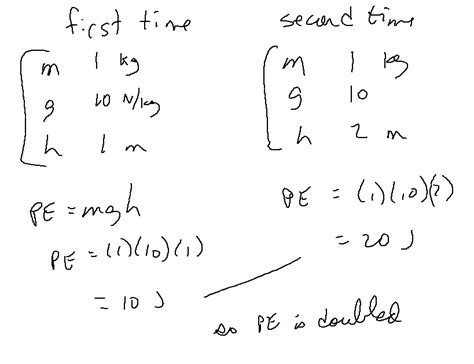 first time
m 1 kg
g 10 N/kg
h 1 m
PE = mgh
PE = (1)(10)(1)
= 10 J
second time
m 1 kg
g 10
h 2 m
PE = (1)(10)(2)
= 20 J
so PE is doubled